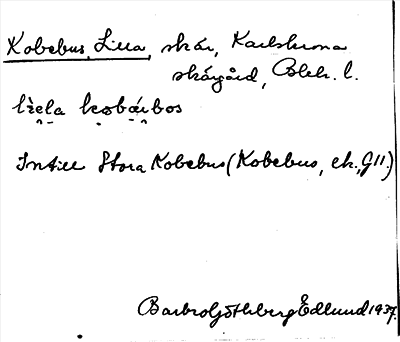 Kobebus, Lilla, skär, Karlskrona
skärgård, Blek. l.
Intill Stora Kobebus (Kobebus, ek., G11.)
Barbro Götherberg Edlund 1937.